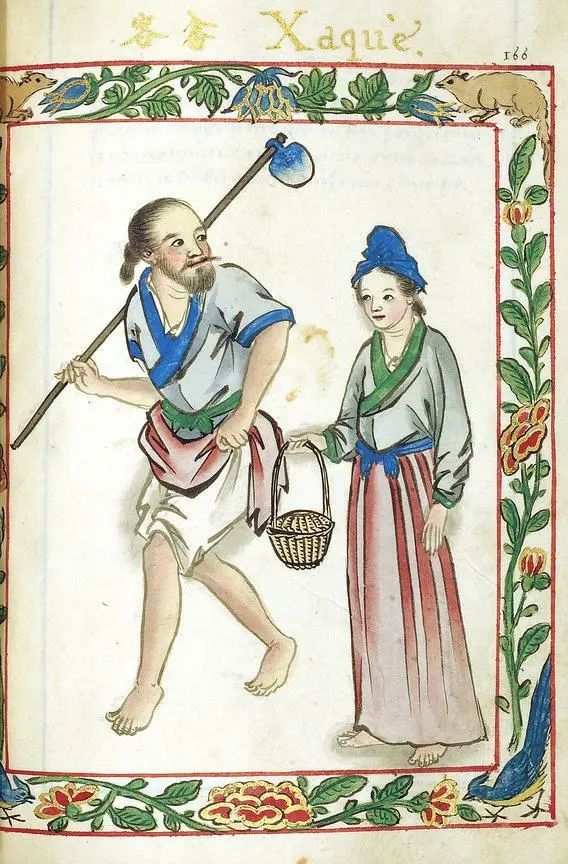 畲客 Xaquè.
166